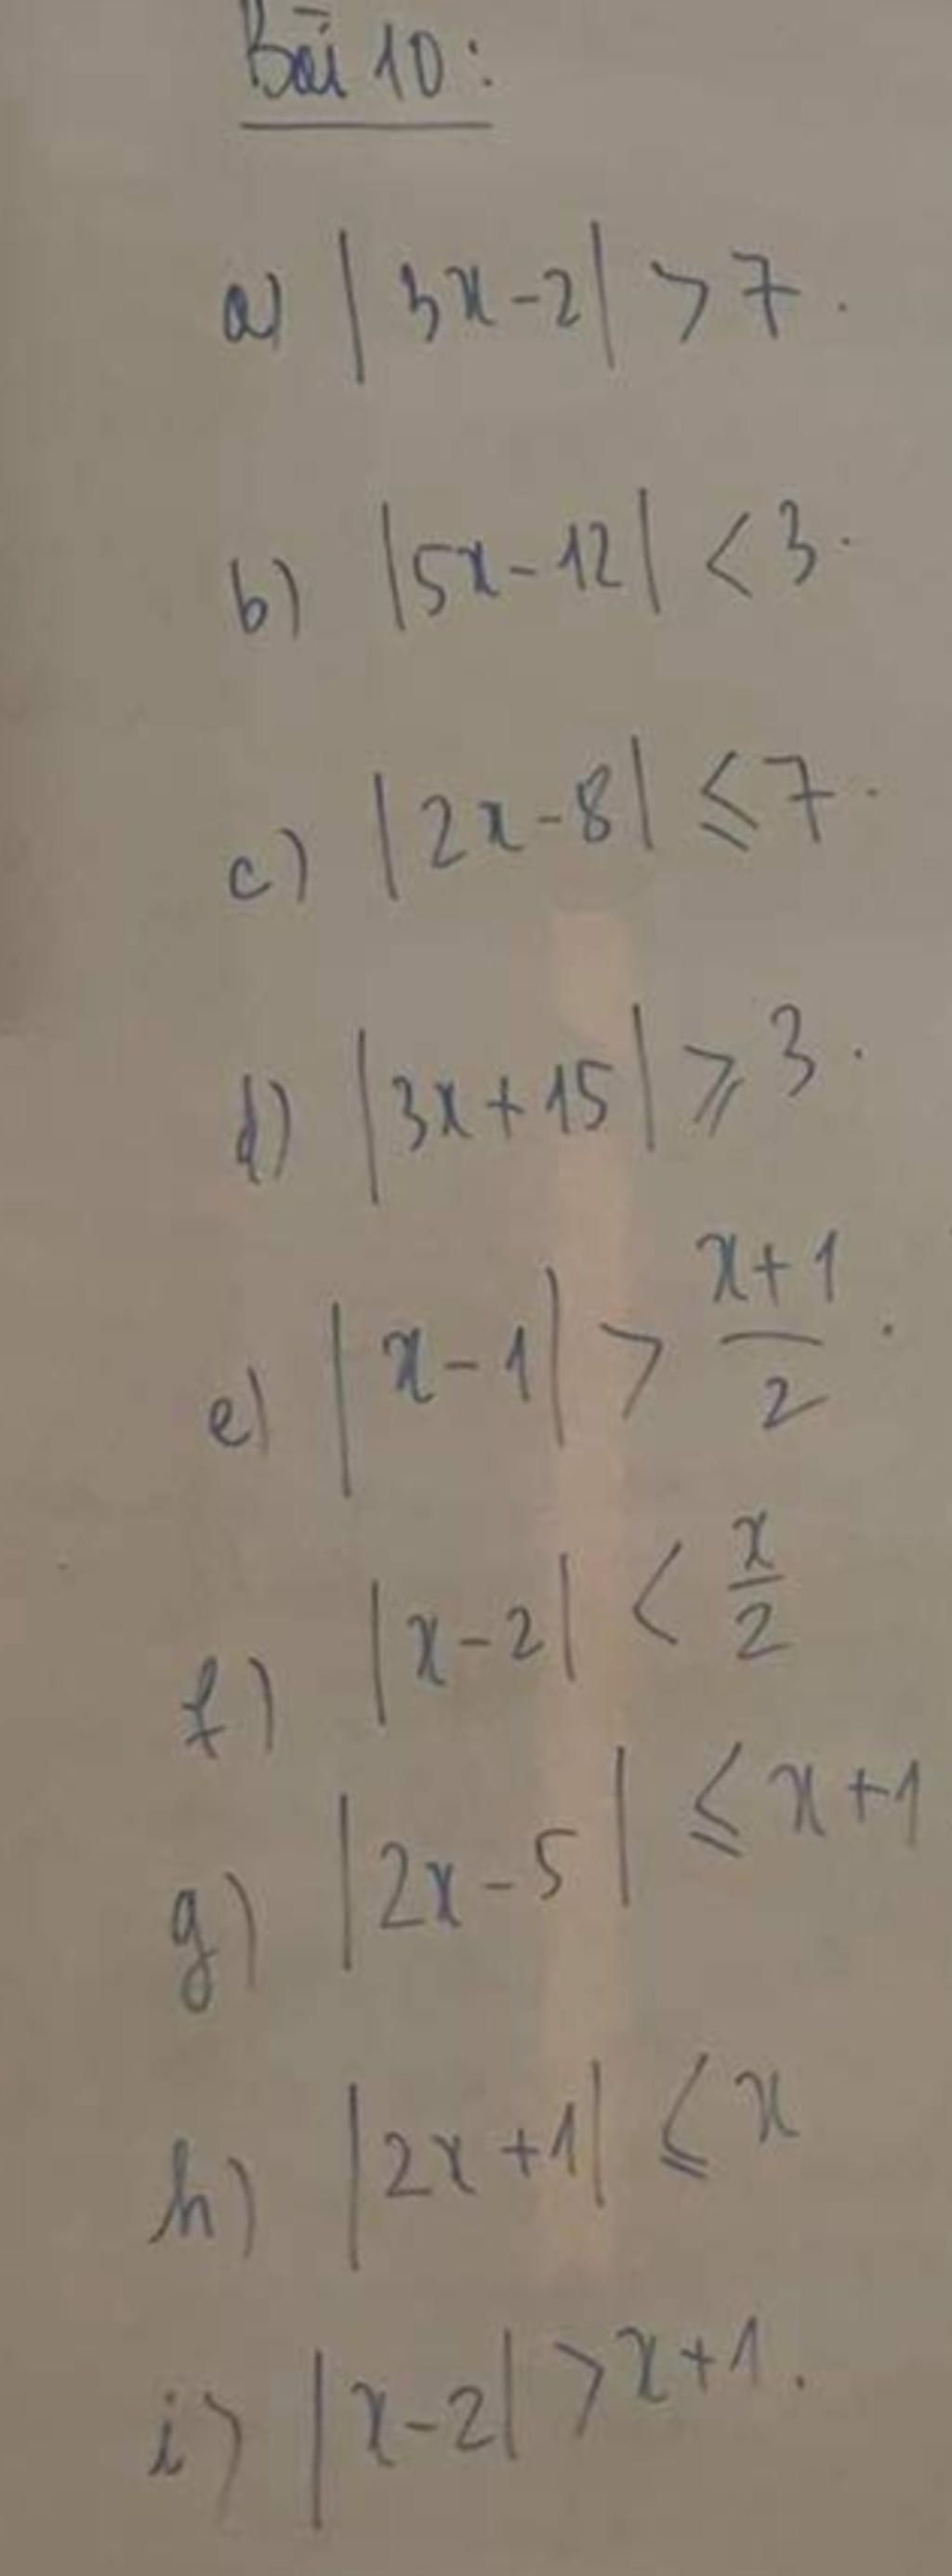 Bài 10:
a) |3x-2| > 7.
b) |5x-12| < 3.
c) |2x-8| ≤ 7.
d) |3x+15| ≥ 3.
e) |x-1| > \frac{x+1}{2}.
f) |x-2| < \frac{x}{2}
g) |2x-5| ≤ x+1
h) |2x+1| ≤ x
i) |x-2| > x+1.